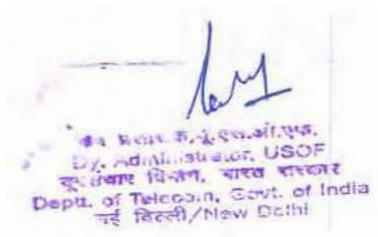 उप प्रशासक, यू.एस.ओ.एफ.
Dy. Administrator, USOF
दूरसंचार विभाग, भारत सरकार
Deptt. of Telecom, Govt. of India
नई दिल्ली/New Delhi